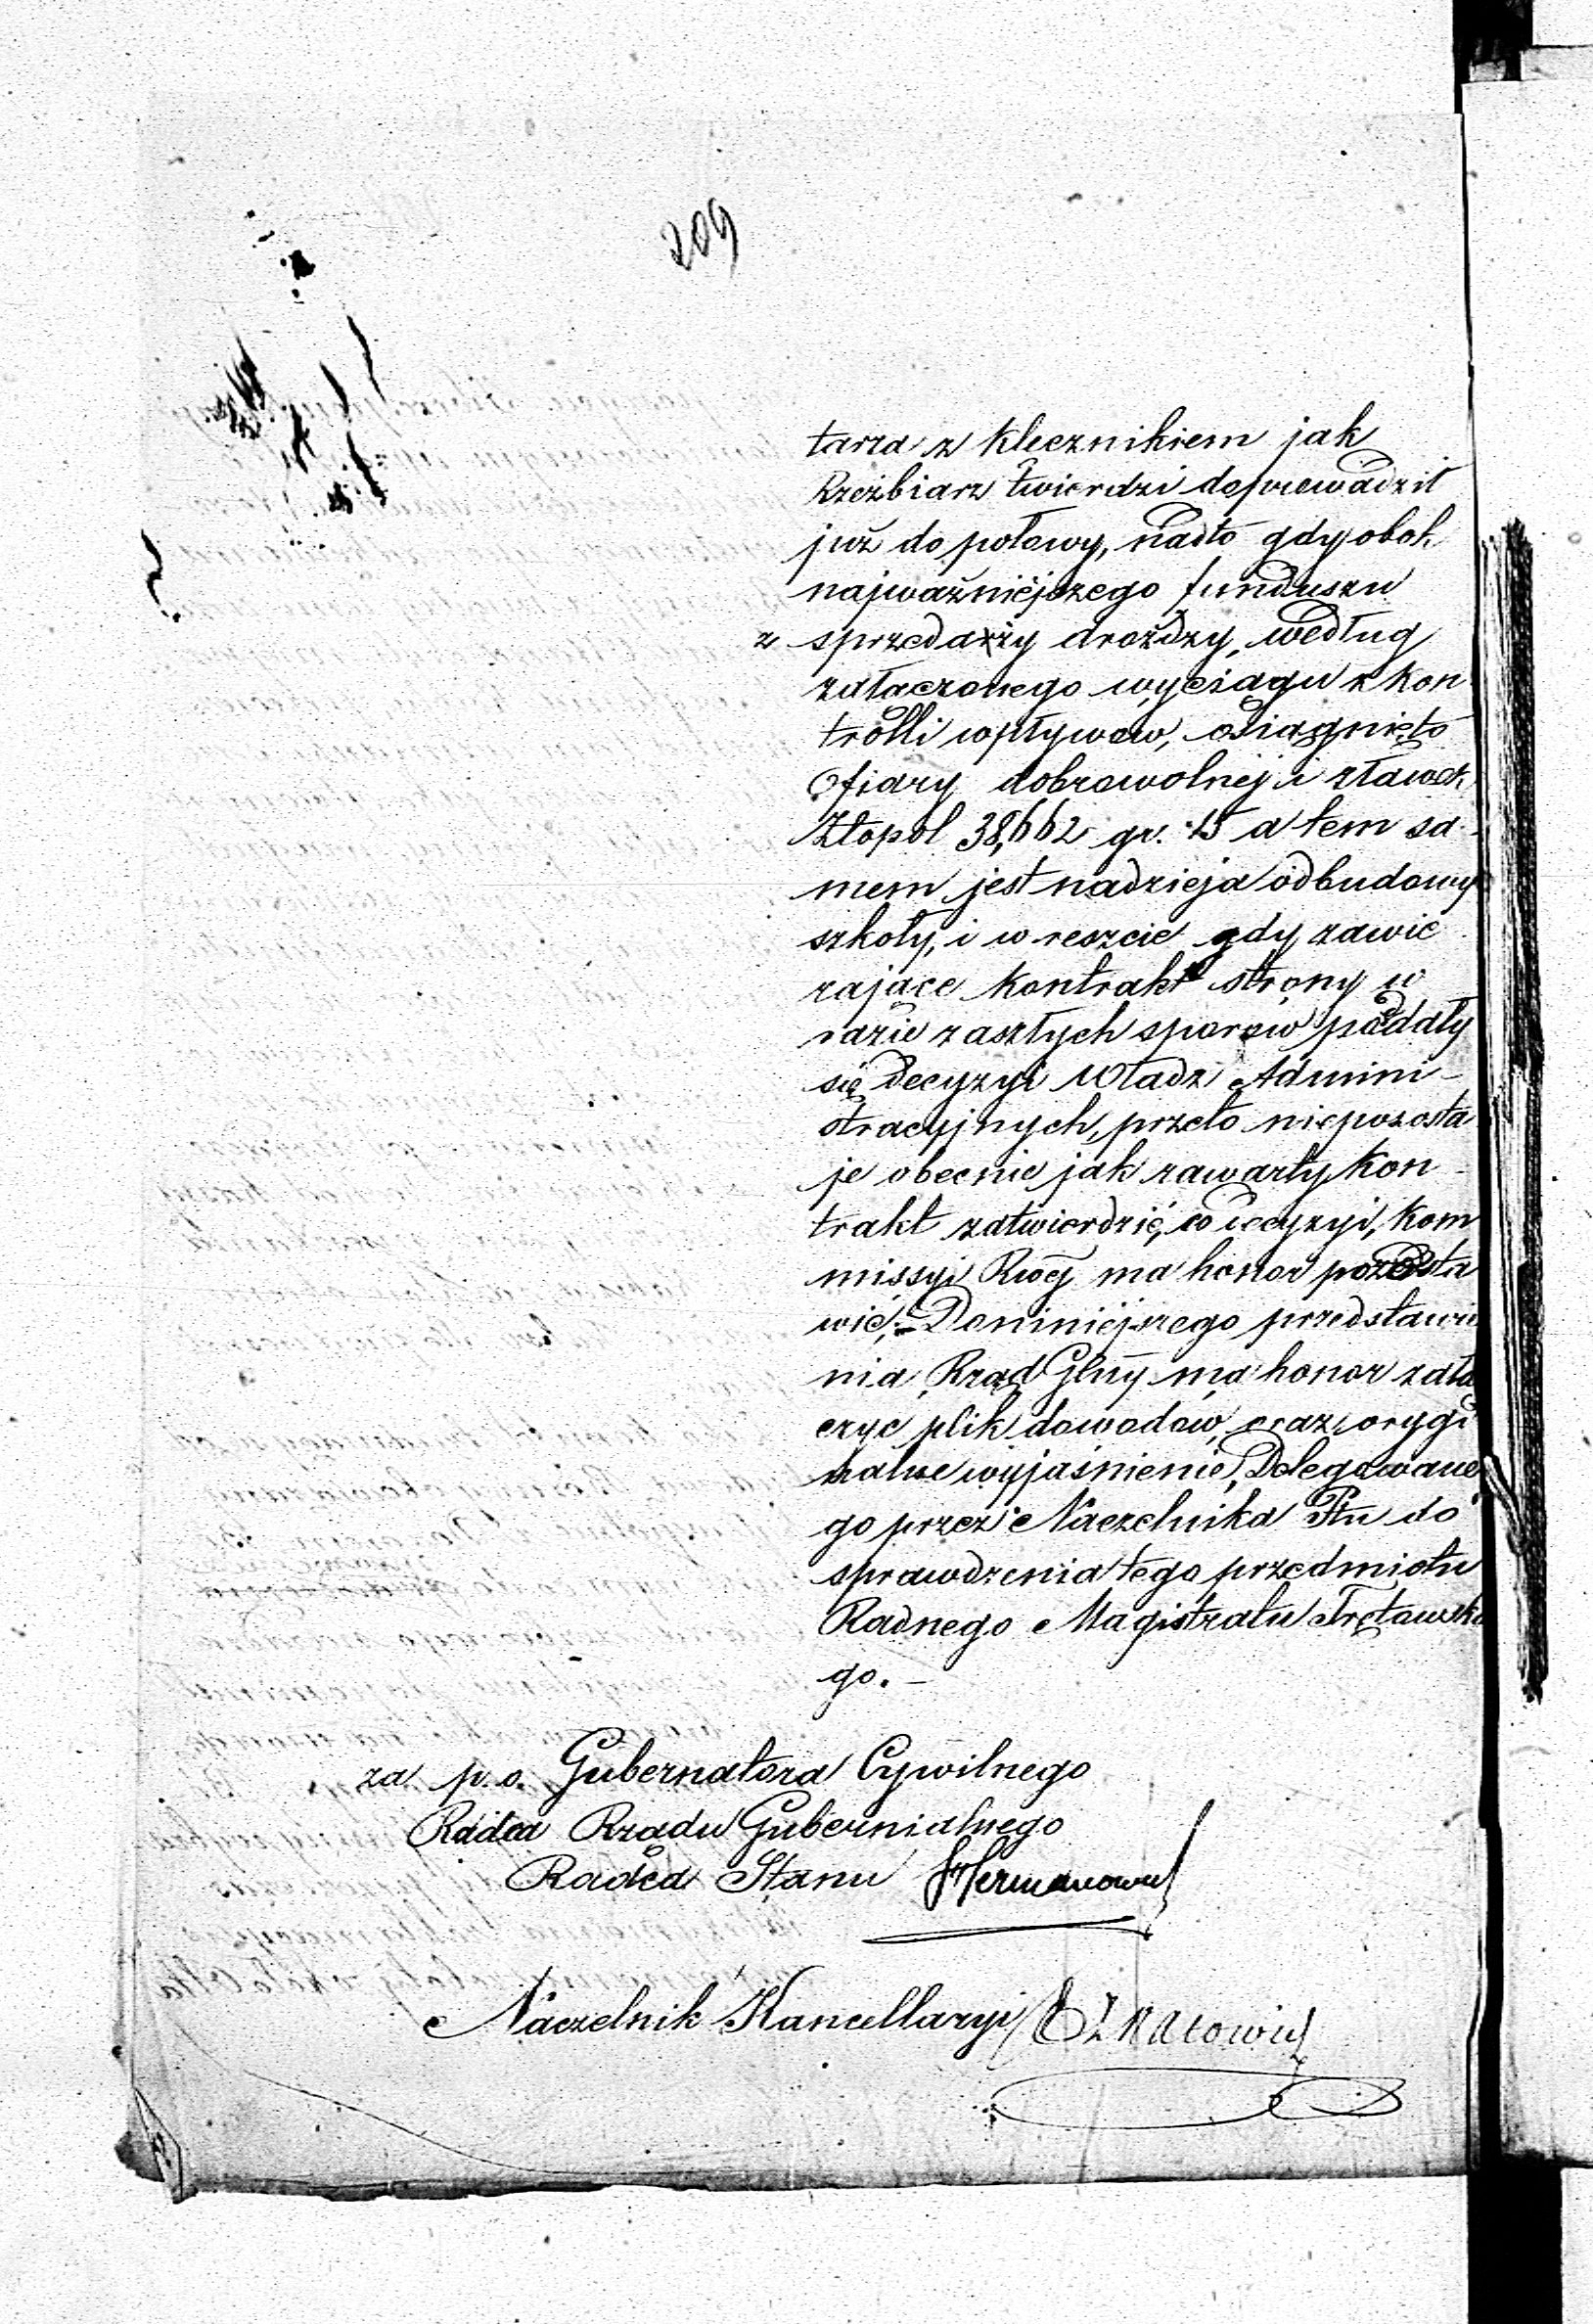 209
tarza z klecznikiem jak
Rzeźbiarz twierdzi doprowadził
już do połowy, nadto gdy obok
najważniejszego funduszu
z sprzedaży drożdzy, według
załączonego wyciągu z kon
trolli wpływow, osiągnięto
Ofiary dobrowolnej i zławek
Złopol 38,662 gr. 15 a tem sa-
mem jest nadzieja odbudowy
szkoły, i w reszcie gdy zawie
rające kontrakt strony w
razie zaszłych sporow poddały
się decyzyi Władz Admini-
stracyjnych, przeto niepozosta
je obecnie jak zawarty kon-
trakt zatwierdzić, co decyzyi, Kom
missyi Rwej ma honor przedsta
wić,- Do niniejszego przedstawie
nia Rząd Glny ma honor załą
czyc plik dowodow, oraz orygi
nalne wyjaśnienie Delegowane
go przez Naczelnika Ptu do
sprawdzenia tego przedmiotu
Radnego Magistratu Tretowsko
go. -
za p. o. Gubernatora Cywilnego
Radca Rządu Gubernialnego
Radca Stanu Hermanowicz
Naczelnik Kancellaryi